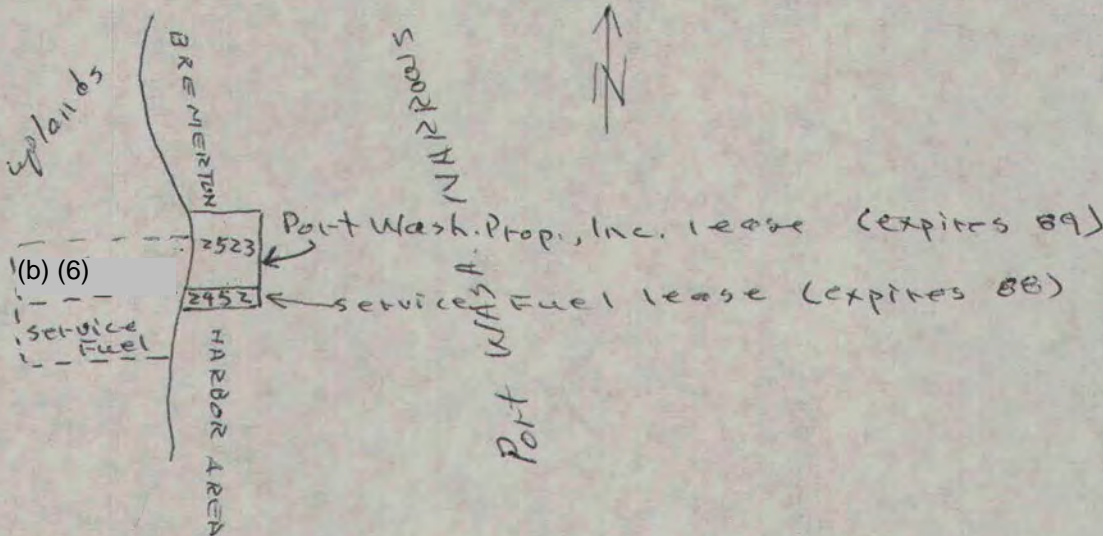 uplands
BREMERTON
HARBOR AREA
Port WASH. NARROWS
N
2523
Port Wash. Prop., Inc. lease (expires 89)
(b) (6)
2452
service Fuel lease (expires 88)
service
Fuel